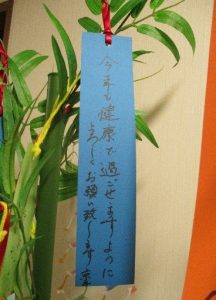 今年も健康で過ごせますように
よろしくお願い致します